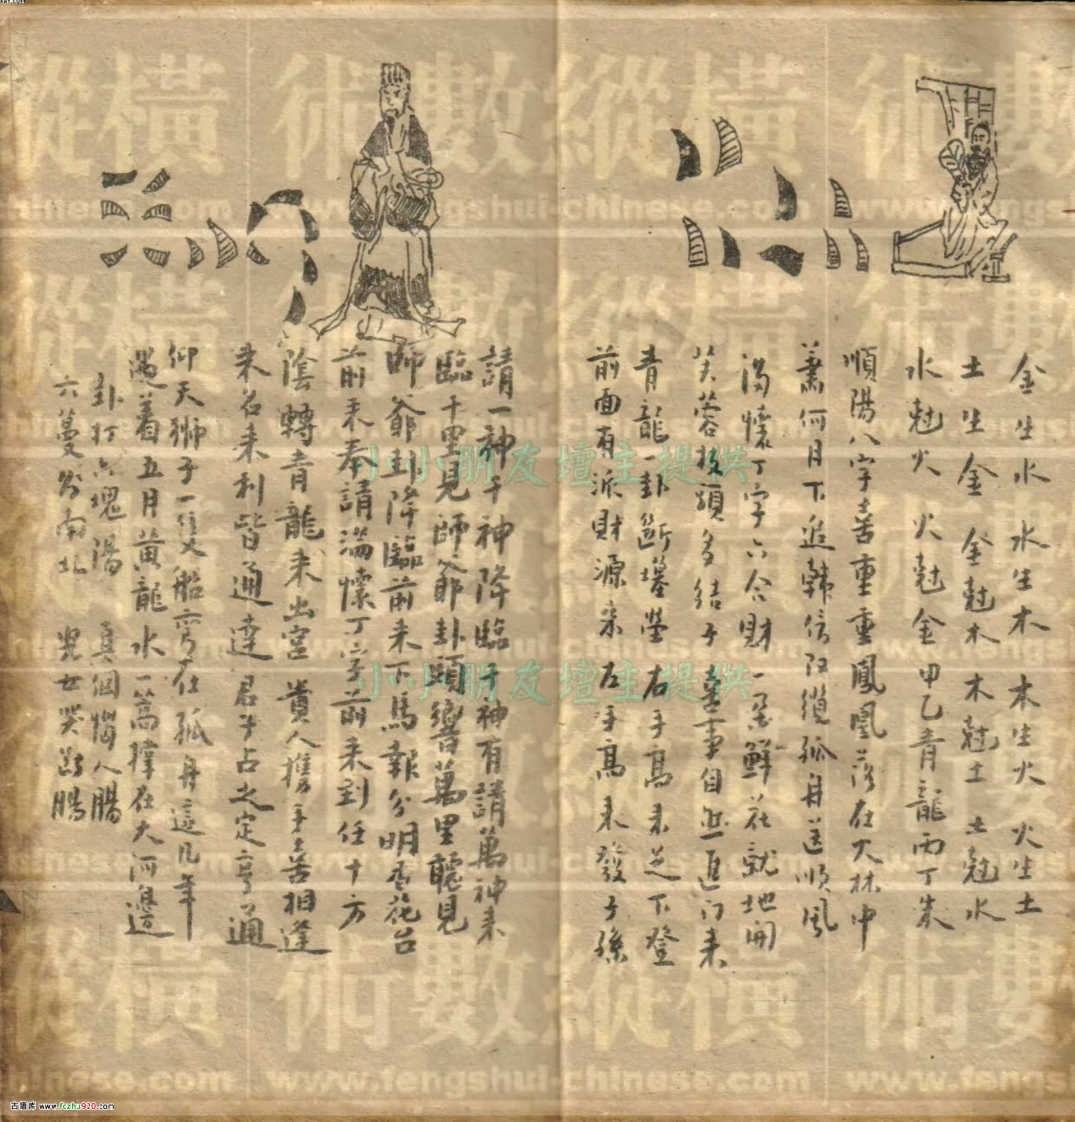 金生水 水生木 木生火 火生土
土生金 金尅木 木尅土 土尅水
水尅火 火尅金 甲乙青龍丙丁朱
順陽八字喜重重鳳凰落在大林中
蕭何月下追韓信 孤舟送順風
滿懷丁字六合財 一朵鮮花就地開
芙蓉枝頭多結子 喜事自然進门来
青龍一卦斷墳塋 右手高来足下登
前面有派財源来左手高来發子孫
請一神千神降臨千神有請萬神来
臨千里見師爺卦頭響萬里聽見
師爺卦降臨前来下馬報分明香花台
前来奉請滿懷丁字前来到任十方
陰轉青龍来出宮 貴人携手喜相逢
求名求利皆通達 君子占之定亨通
仰天獅子一隻船 在孤舟這几年
遇着五月黄龍水 一篙撑在大河邊
卦打六塊陽 真個惱人腸
六 南北 兒女哭斷腸
縱橫術數
www.fengshui-chinese.com
小小朋友壇主提供
小小朋友壇主提供
古籍库 www.fczhu920.com